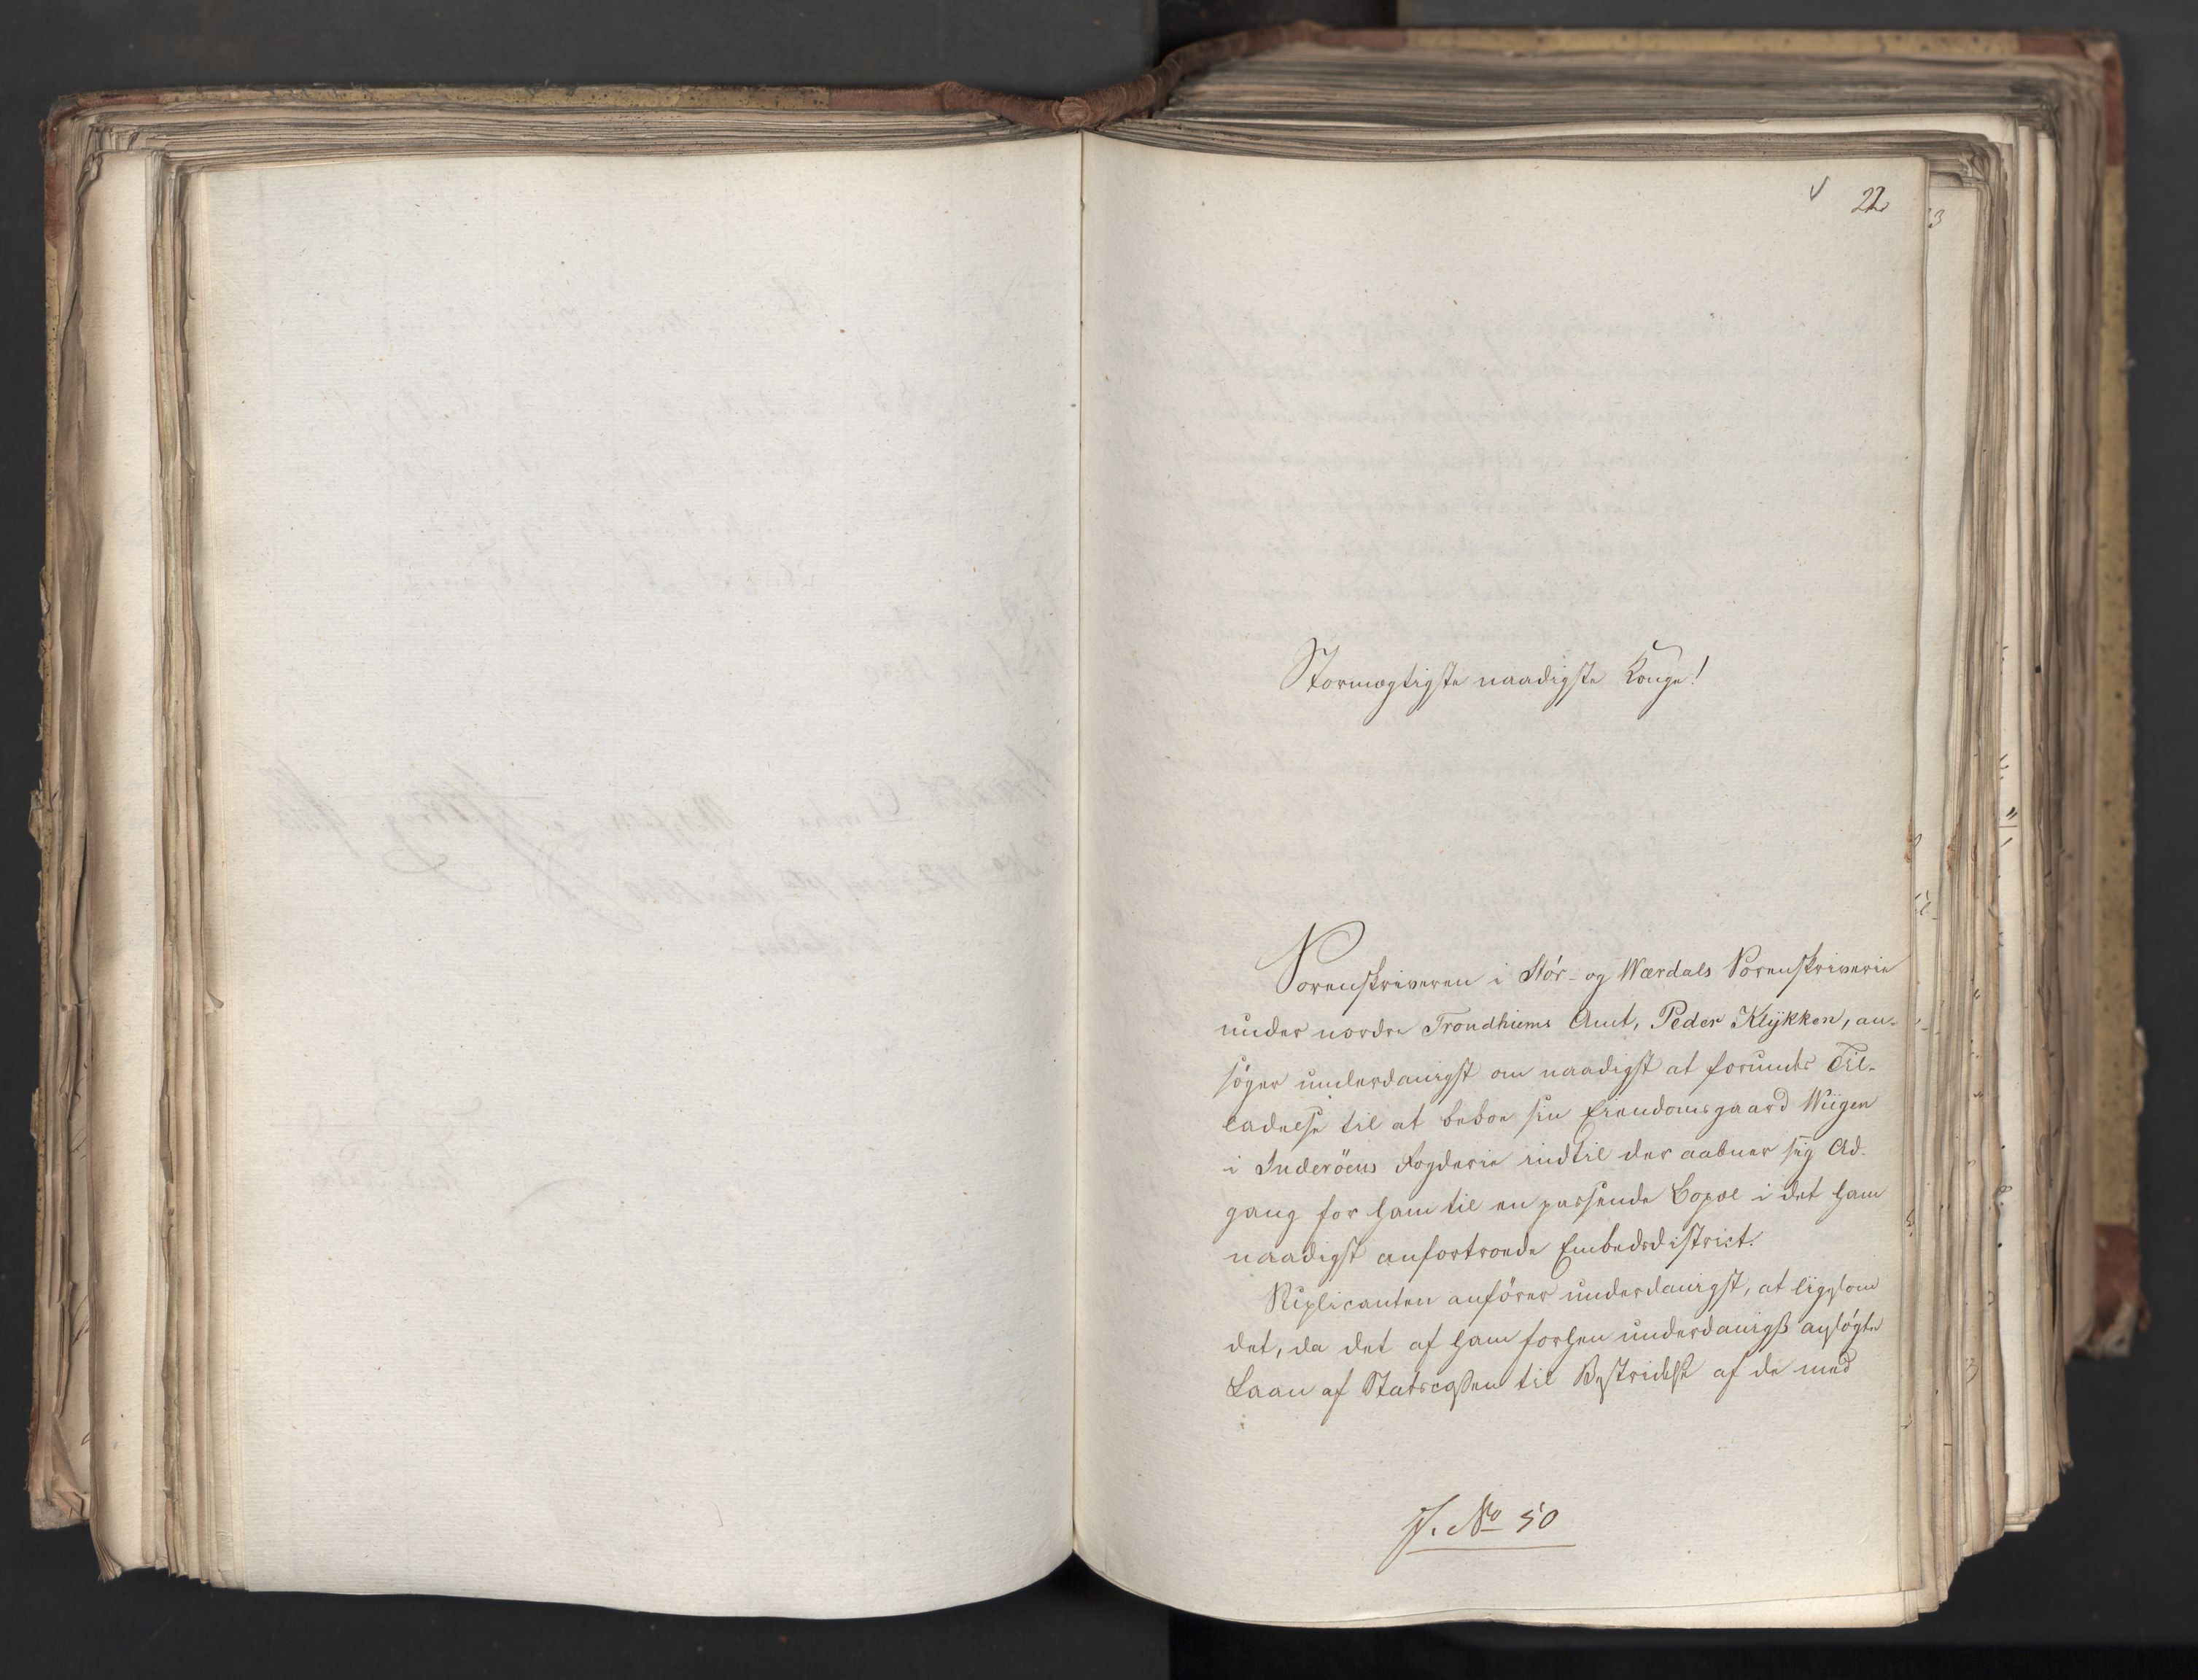 22
Stormægtigste naadigste Konge!
Sorenskriveren i Stör- og Wærdals Sorenskriverie
under nordre Trondhiems Amt, Peder Klÿkken, an-
söger underdanigst om naadigst at forundes Til-
ladelse til at beboe sin Eiendomsgaard Wiigen
i Inderöens Fogderie indtil der aabner sig Ad-
gang for ham til en passende Bopæl i det ham
naadigst anfortroede Embedsdistrict.
Suplicanten anförer underdanigst, at ligesom
det, da det af ham forhen underdanigst ansögte
Laan af Statscassen til Bestridelse af de med
J. No 50